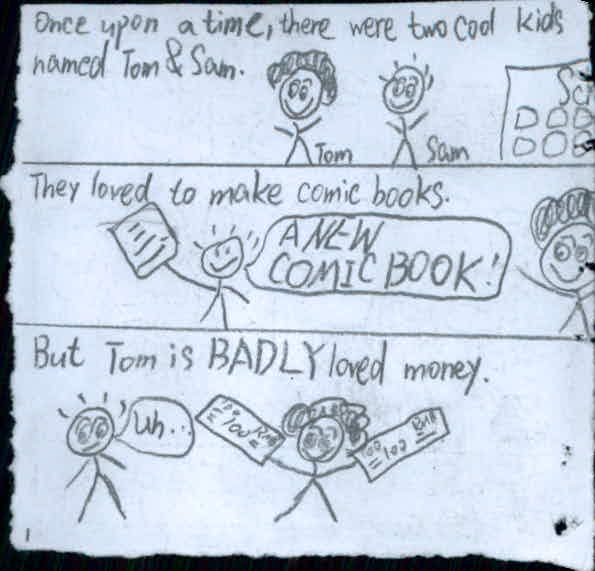 Once upon a time, there were two cool kids
named Tom & Sam.
Sc
Tom
Sam
They loved to make comic books.
A NEW
COMIC BOOK!
But Tom is BADLY loved money.
Uh...
100 RMB
100 RMB
1